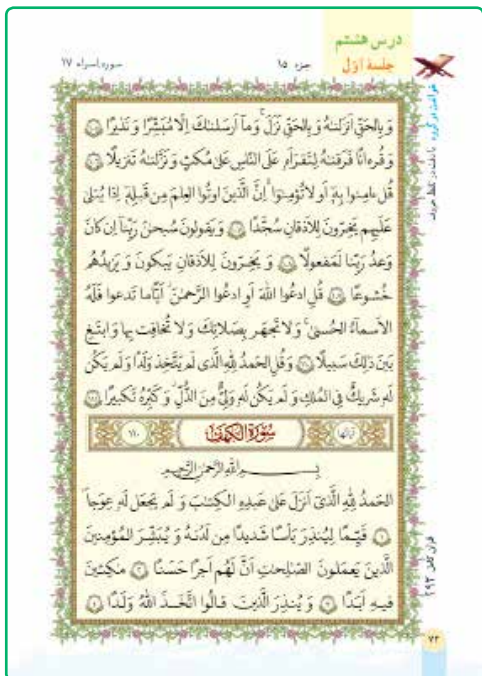 درس هشتم
جلسهٔ اوّل
جزء ۱۵
سوره إسراء ۱۷
وَ بِالحَقِّ اَنزَلناهُ وَ بِالحَقِّ نَزَلَ ۗ وَ ما اَرسَلناكَ اِلّا مُبَشِّرًا وَ نَذيرًا ۝۱۰۵
وَ قُرءانًا فَرَقناهُ لِتَقرَاَهو عَلَى النّاسِ عَلىٰ مُكثٍ وَ نَزَّلناهُ تَنزيلًا ۝۱۰۶
قُل ءامِنوا بِهٖ اَو لا تُؤمِنوا ۚ اِنَّ الَّذينَ اوتُوا العِلمَ مِن قَبلِهٖ اِذا يُتلىٰ
عَلَيهِم يَخِرّونَ لِلاَذقانِ سُجَّدًا ۝۱۰۷ وَ يَقولونَ سُبحانَ رَبِّنا اِن كانَ
وَعدُ رَبِّنا لَمَفعولًا ۝۱۰۸ وَ يَخِرّونَ لِلاَذقانِ يَبكونَ وَ يَزيدُهُم
خُشوعًا ۝۱۰۹ قُلِ ادعُوا اللّٰهَ اَوِ ادعُوا الرَّحمٰنَ ۖ اَيًّا ما تَدعوا فَلَهُ
الاَسماءُ الحُسنىٰ ۚ وَ لا تَجهَر بِصَلاتِكَ وَ لا تُخافِت بِها وَ ابتَغِ
بَينَ ذٰلِكَ سَبيلًا ۝۱۱۰ وَ قُلِ الحَمدُ لِلّٰهِ الَّذى لَم يَتَّخِذ وَلَدًا وَ لَم يَكُن
لَهو شَريكٌ فِى المُلكِ وَ لَم يَكُن لَهو وَلِىٌّ مِنَ الذُّلِّ ۖ وَ كَبِّرهُ تَكبيرًا ۝۱۱۱
سُورَةُ الكَهفِ
۱۱۰
بِسـمِ اللّٰهِ الرَّحمٰنِ الرَّحيمِ
اَلحَمدُ لِلّٰهِ الَّذى اَنزَلَ عَلىٰ عَبدِهِ الكِتٰبَ وَ لَم يَجعَل لَهو عِوَجًا
۝۱ قَيِّمًا لِيُنذِرَ بَأسًا شَديدًا مِن لَدُنهُ وَ يُبَشِّرَ المُؤمِنينَ
الَّذينَ يَعمَلونَ الصّٰلِحٰتِ اَنَّ لَهُم اَجرًا حَسَنًا ۝۲ مٰكِثينَ
فيهِ اَبَدًا ۝۳ وَ يُنذِرَ الَّذينَ قالُوا اتَّخَذَ اللّٰهُ وَلَدًا ۝۴
قرآن کامل ۲۹۳
۷۲